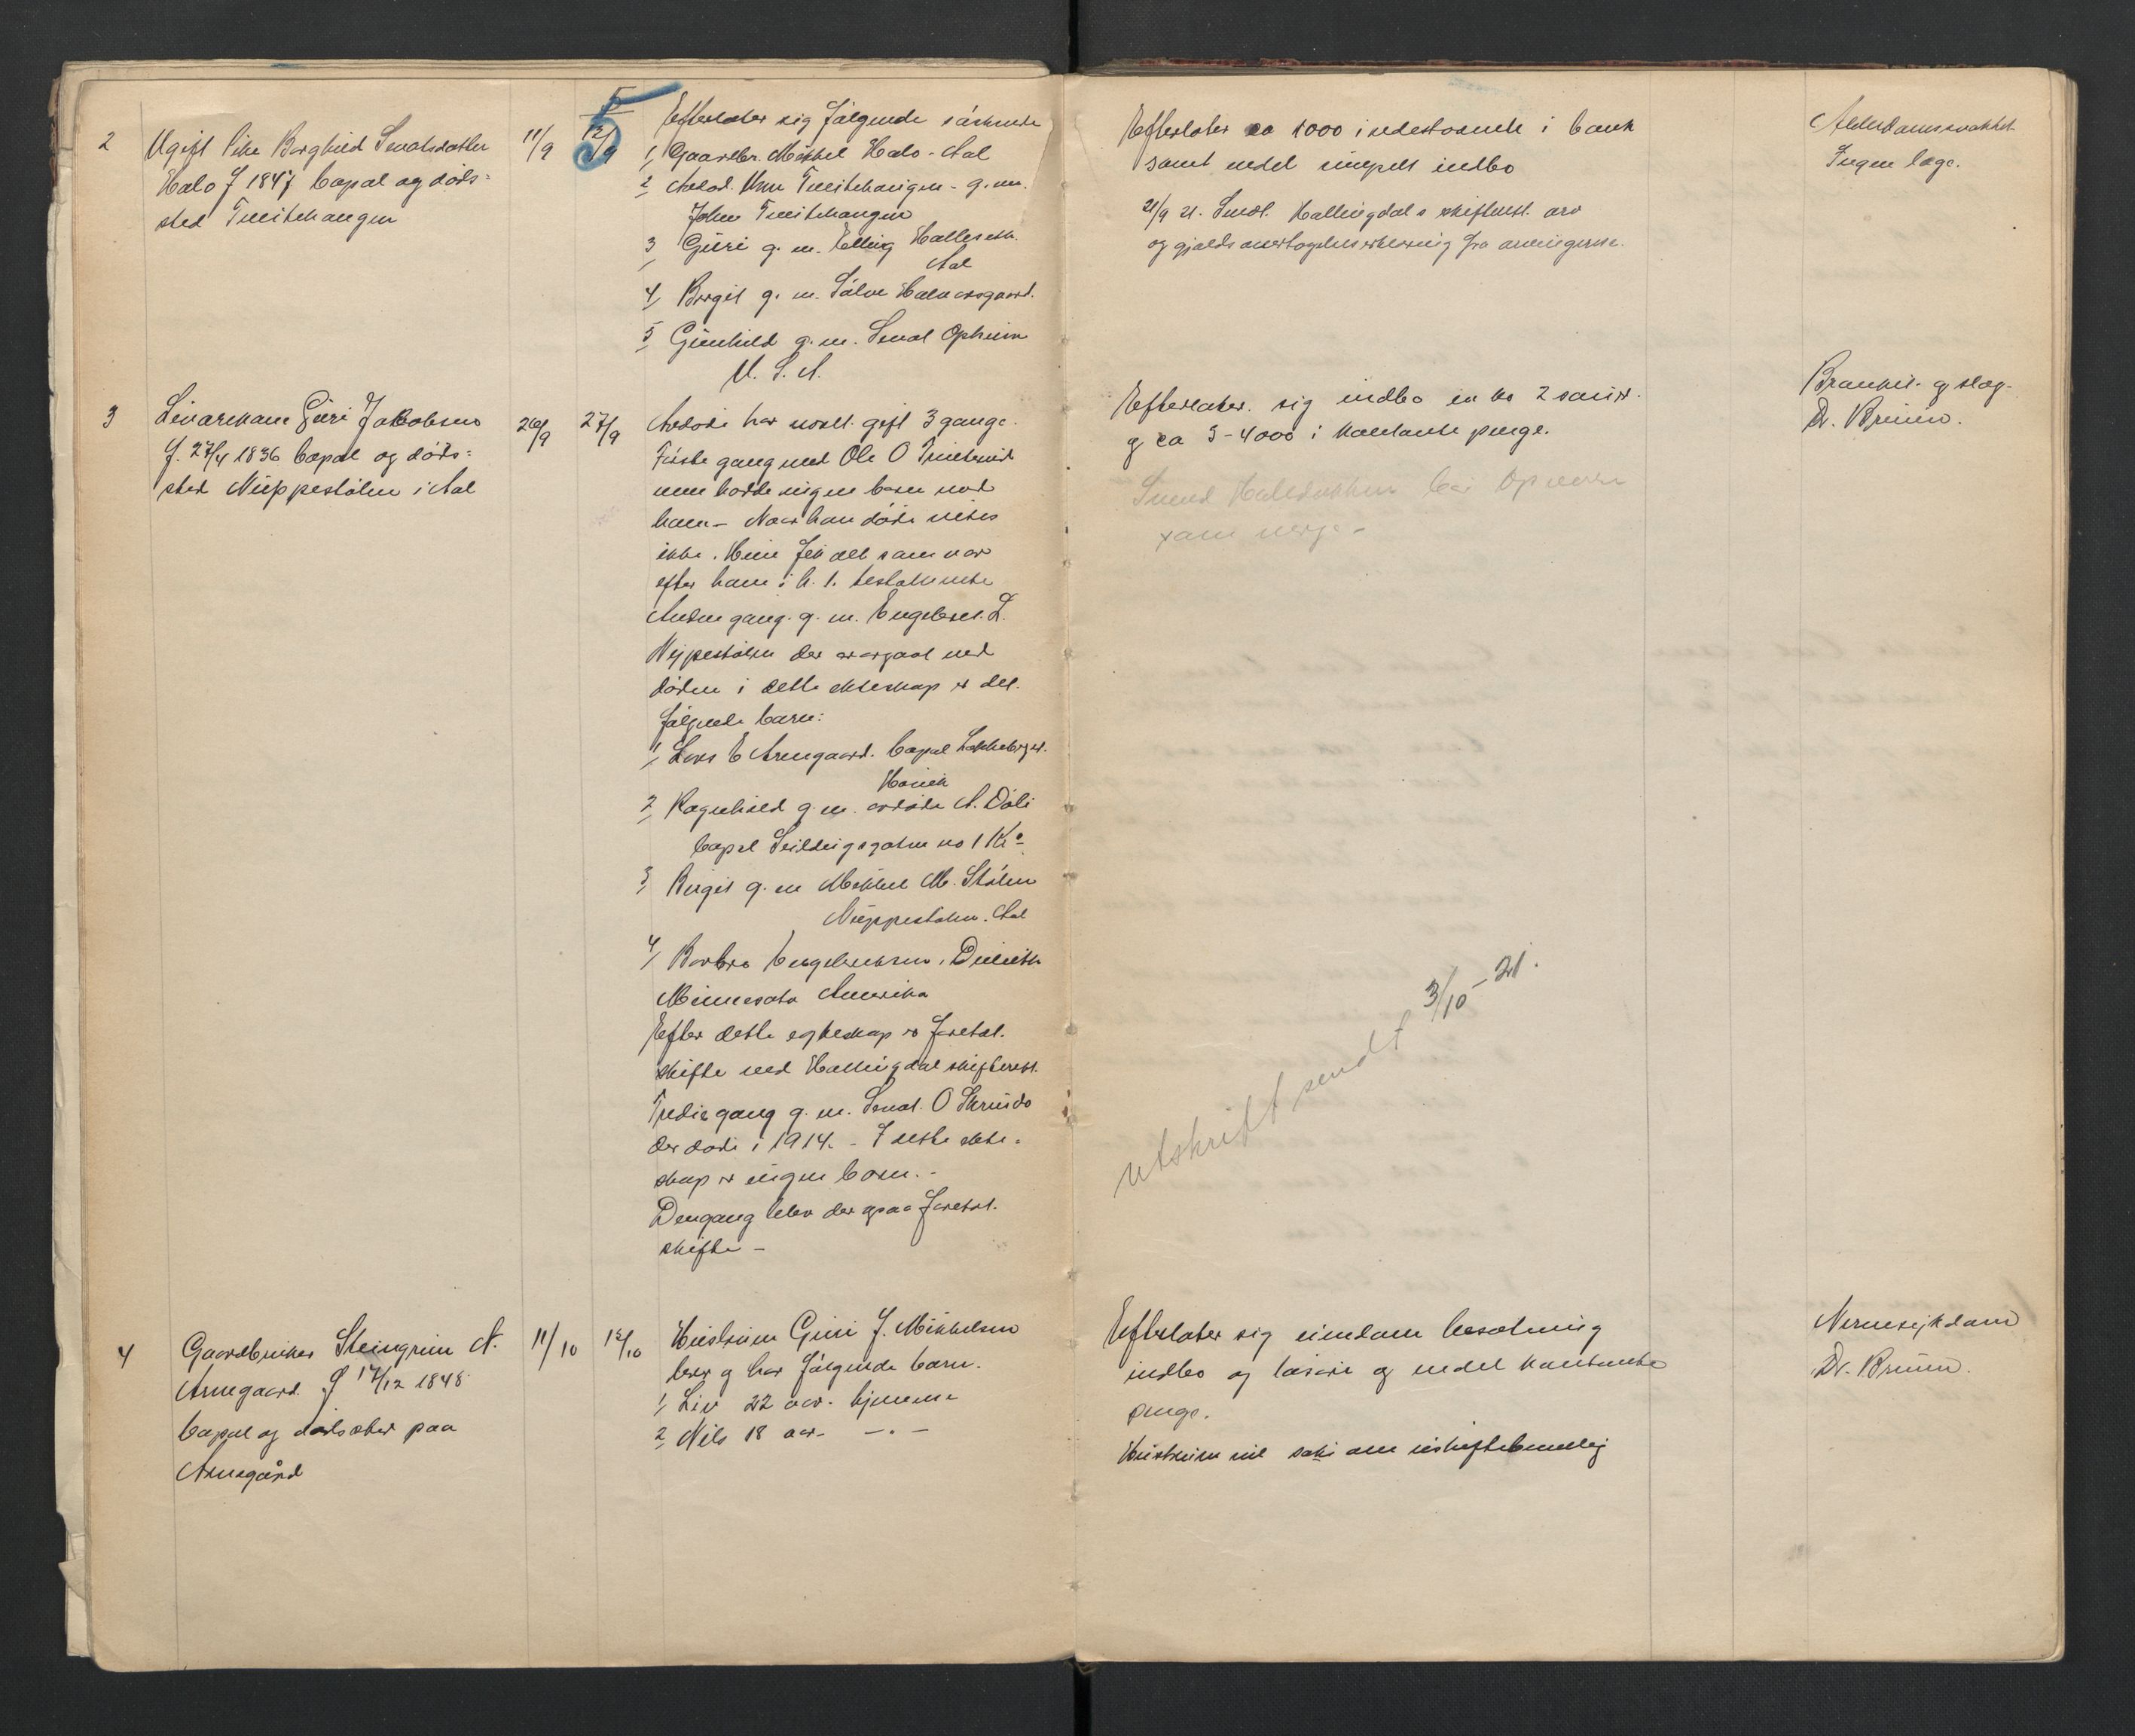 5
2
Ugift Pike Borghild Sevatsdatter
Halo f 1847 bopæl og døds=
sted Tveitehaugen
11/9
12/9
Efterlater sig følgende søskende
1, Gaardbr. Mikkel Halo - Aal
2, Avdød. Tveitehaugen - g. m.
John Tveitehaugen
3, Guri g. m. Elling
Aal
4, Birgit g. m. Sølve Halvorsgaard.
5, Gunhild g. m. Sevat Opheim
U. S. A.
Efterlater ca 1000 indestaaende i bank
samt endel simpelt indbo
21/9 21. Sendt. Hallingdals skifteret. arv
og gjældsovertagelseserklæring fra arvingerne.
Alderdomssvakhet
Ingen læge.
3
Guri Jakobsen
f. 27/4 1836 bopæl og døds=
sted Nuppestølen i Aal
26/9
27/9
Avdøde har vært gift 3 gange.
Første gang med Ole O
men hadde ingen barn med
ham - Naar han døde vites
ikke. Hun fik alt som var
efter ham i h. t. testamente
Anden gang g. m. Engebret L.
der er avgaat ved
døden i dette ekteskap er det
følgende barn:
1, Lars E Arnegaard. bopæl
2, Ragnhild g. m. avdøde A. Døli
bopæl no 1 Kr.a
3, Birgit g. m Mikkel M. Stølen
Nuppestølen. Aal
4, Barbro Engebretsen, Duluth
Minnesota Amerika
Efter dette egteskap er foretat.
skifte ved Hallingdal skifteret.
Tredie gang g. m. Sevat. O Skrindo
der døde i 1914. - I dette ekte=
skap er ingen barn. -
Dengang blev der ogsaa foretat.
skifte -
Efterlater. sig indbo en ko 2 sauer.
og ca 3-4000 i kontante penge.
Svend bør opnevnes
som verge -
utskrift sendt 3/10 - 21.
Dr. Bruun.
4
Gaardbruker Steingrim N.
Arnegaard. f 17/12 1848
bopæl og dødssted paa
Arnegård
11/10
12/10
Hustruen Guri J. Mikkelsen
lever og har følgende barn.
1, Liv 22 aar. hjemme
2, Nils 18 aar. — . —
Efterlater sig eiendom besætning
indbo og løsøre og endel kontante
penge.
Hustruen vil søke om uskiftebevillig
Nyresykdom
Dr. Bruun.